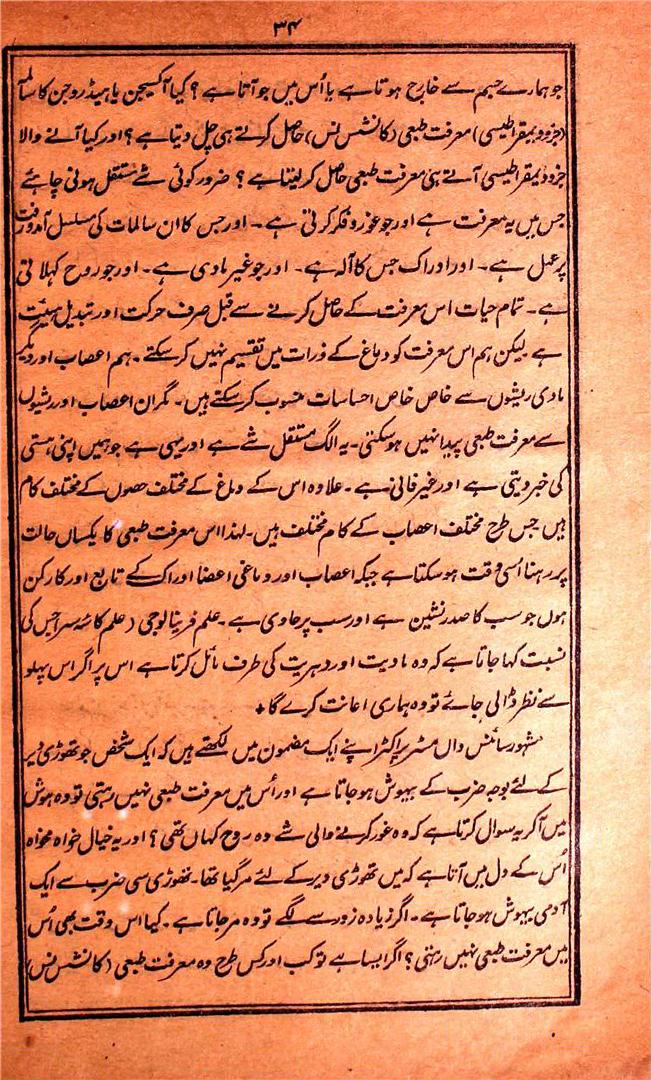 ۳۴
جو ہمارے جسم سے خارج ہوتا ہے یا اُس میں جو آتا ہے ؟ کیا آکسیجن یا ہیڈروجن کا سالمہ
(جزو دیمقراطیسی) معرفت طبعی (کانشس نس) حاصل کرتے ہی چل دیتا ہے ؟ اور کیا آنے والا
جزو دیمقراطیسی آتے ہی معرفت طبعی حاصل کر لیتا ہے ؟ ضرور کوئی شے مستقل ہونی چاہئے
جس میں یہ معرفت ہے اور جو غور و فکر کرتی ہے ۔ اور جس کا ان سالمات کی مسلسل آمد و رفت
پر عمل ہے ۔ اور ادراک جس کا آلہ ہے ۔ اور جو غیر مادی ہے ۔ اور جو روح کہلاتی
ہے ۔ تمام حیات اس معرفت کے حاصل کرنے سے قبل صرف حرکت اور تبدیل ہیئت
ہے لیکن ہم اس معرفت کو دماغ کے ذرات میں تقسیم نہیں کر سکتے ۔ ہم اعصاب اور دیگر
مادی ریشوں سے خاص خاص احساسات منسوب کر سکتے ہیں ۔ مگر ان اعصاب اور ریشوں
سے معرفت طبعی پیدا نہیں ہو سکتی ۔ یہ الگ مستقل شے ہے اور یہی ہے جو ہمیں اپنی ہستی
کی خبر دیتی ہے اور غیر فانی ہے ۔ علاوہ اس کے دماغ کے مختلف حصوں کے مختلف کام
ہیں جس طرح مختلف اعصاب کے کام مختلف ہیں ۔ لہذا اس معرفت طبعی کا یکساں حالت
پر رہنا اُسی وقت ہو سکتا ہے جبکہ اعصاب اور دماغی اعضا ادراک کے تابع اور کارکن
ہوں جو سب کا صدر نشین ہے اور سب پر حاوی ہے ۔ علم فرینالوجی (علم کاسۂ سر) جس کی
نسبت کہا جاتا ہے کہ وہ مادیت اور دہریت کی طرف مائل کرتا ہے اس پر اگر اس پہلو
سے نظر ڈالی جائے تو وہ ہماری اعانت کرے گا ٭
مشہور سائنس داں مسٹر پراکٹر اپنے ایک مضمون میں لکھتے ہیں کہ ایک شخص جو تھوڑی دیر
کے لئے بوجہ ضرب کے بیہوش ہو جاتا ہے اور اُس میں معرفت طبعی نہیں رہتی تو وہ ہوش
میں آکر یہ سوال کرتا ہے کہ وہ غور کرنے والی شے وہ روح کہاں تھی ؟ اور یہ خیال خواہ مخواہ
اُس کے دل میں آتا ہے کہ میں تھوڑی دیر کے لئے مر گیا تھا ۔ تھوڑی سی ضرب سے ایک
آدمی بیہوش ہو جاتا ہے ۔ اگر زیادہ زور سے لگے تو وہ مر جاتا ہے ۔ کیا اس وقت بھی اُس
میں معرفت طبعی نہیں رہتی ؟ اگر ایسا ہے تو کب اور کس طرح وہ معرفت طبعی (کانشس نس)